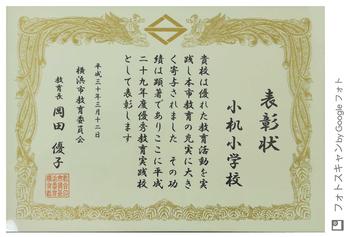 表彰状
小机小学校
貴校は優れた教育活動を実
践し本市教育の充実に大き
く寄与されました その功
績は顕著でありここに平成
二十九年度優秀教育実践校
として表彰します
平成三十年三月十二日
横浜市教育委員会
教育長 岡田優子
フォトスキャン by Google フォト